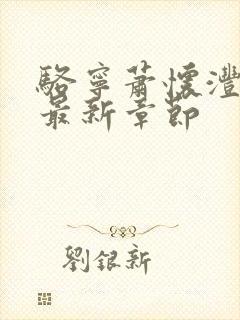 駱寧蕭懷灃
最新章節
劉銀新